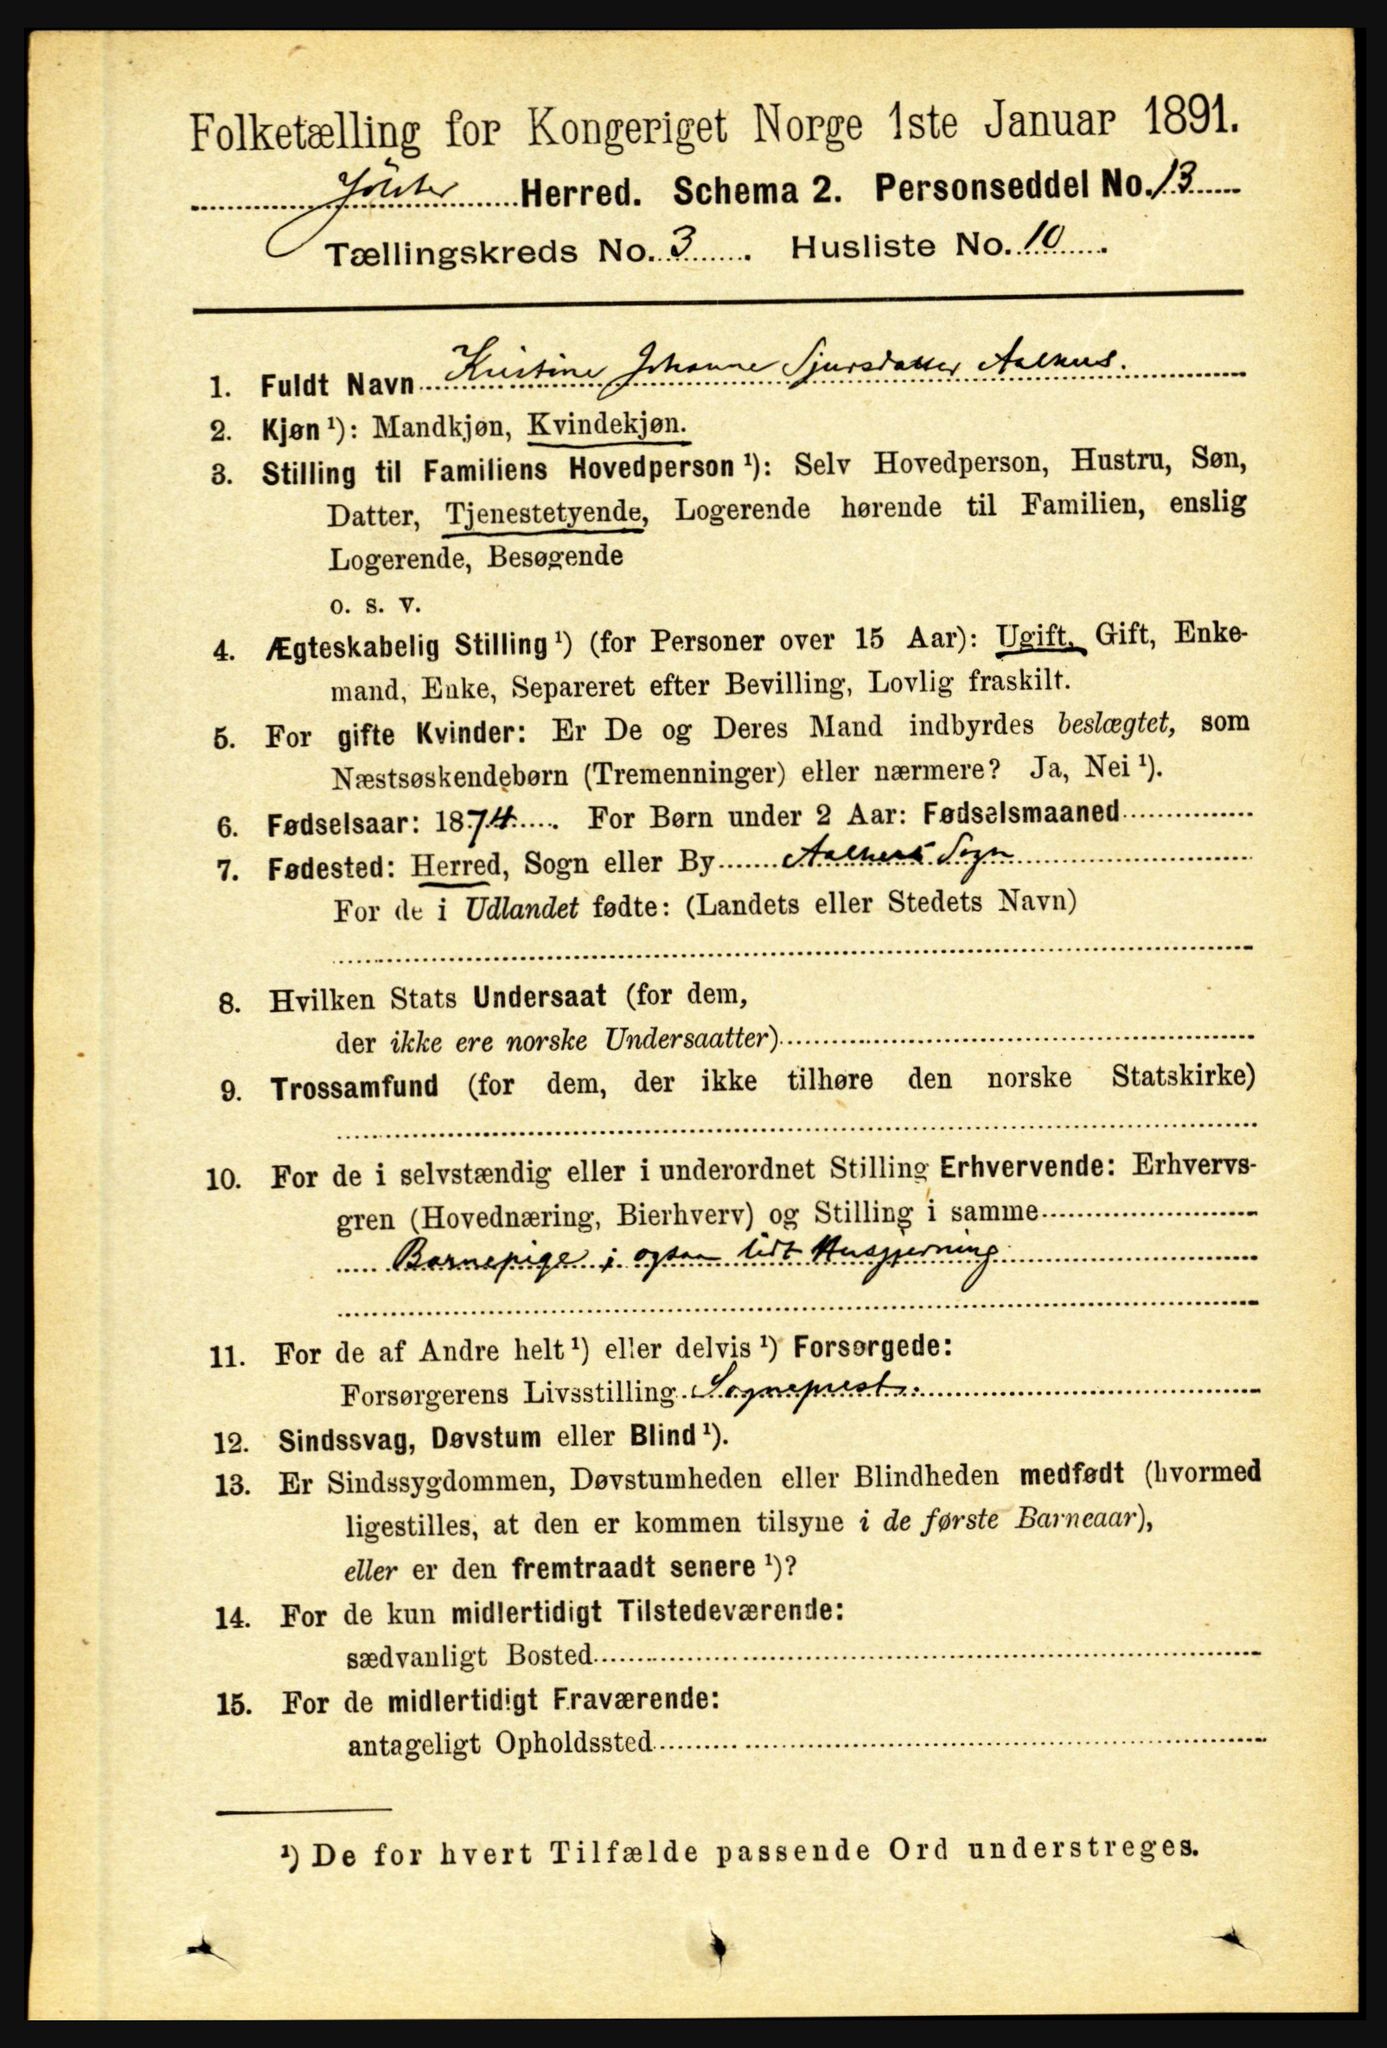 Folketælling for Kongeriget Norge 1ste Januar 1891.
Jölster Herred. Schema 2. Personseddel No. 13
Tællingskreds No. 3. Husliste No. 10.
1. Fuldt Navn Kristine Johanne Sjursdatter Aalhus.
2. Kjøn ¹): Mandkjøn, Kvindekjøn.
3. Stilling til Familiens Hovedperson ¹): Selv Hovedperson, Hustru, Søn,
Datter, Tjenestetyende, Logerende hørende til Familien, enslig
Logerende, Besøgende
o. s. v.
4. Ægteskabelig Stilling ¹) (for Personer over 15 Aar): Ugift, Gift, Enke-
mand, Enke, Separeret efter Bevilling, Lovlig fraskilt.
5. For gifte Kvinder: Er De og Deres Mand indbyrdes beslægtet, som
Næstsøskendebørn (Tremenninger) eller nærmere? Ja, Nei ¹).
6. Fødselsaar: 1874. For Børn under 2 Aar: Fødselsmaaned
7. Fødested: Herred, Sogn eller By Aalhus Sogn
For de i Udlandet fødte: (Landets eller Stedets Navn)
8. Hvilken Stats Undersaat (for dem,
der ikke ere norske Undersaatter)
9. Trossamfund (for dem, der ikke tilhøre den norske Statskirke)
10. For de i selvstændig eller i underordnet Stilling Erhvervende: Erhvervs-
gren (Hovednæring, Bierhverv) og Stilling i samme
Barnepige; ogsaa lidt Husgjerning
11. For de af Andre helt ¹) eller delvis ¹) Forsørgede:
Forsørgerens Livsstilling Sogneprest.
12. Sindssvag, Døvstum eller Blind ¹).
13. Er Sindssygdommen, Døvstumheden eller Blindheden medfødt (hvormed
ligestilles, at den er kommen tilsyne i de første Barneaar),
eller er den fremtraadt senere ¹)?
14. For de kun midlertidigt Tilstedeværende:
sædvanligt Bosted
15. For de midlertidigt Fraværende:
antageligt Opholdssted
¹) De for hvert Tilfælde passende Ord understreges.